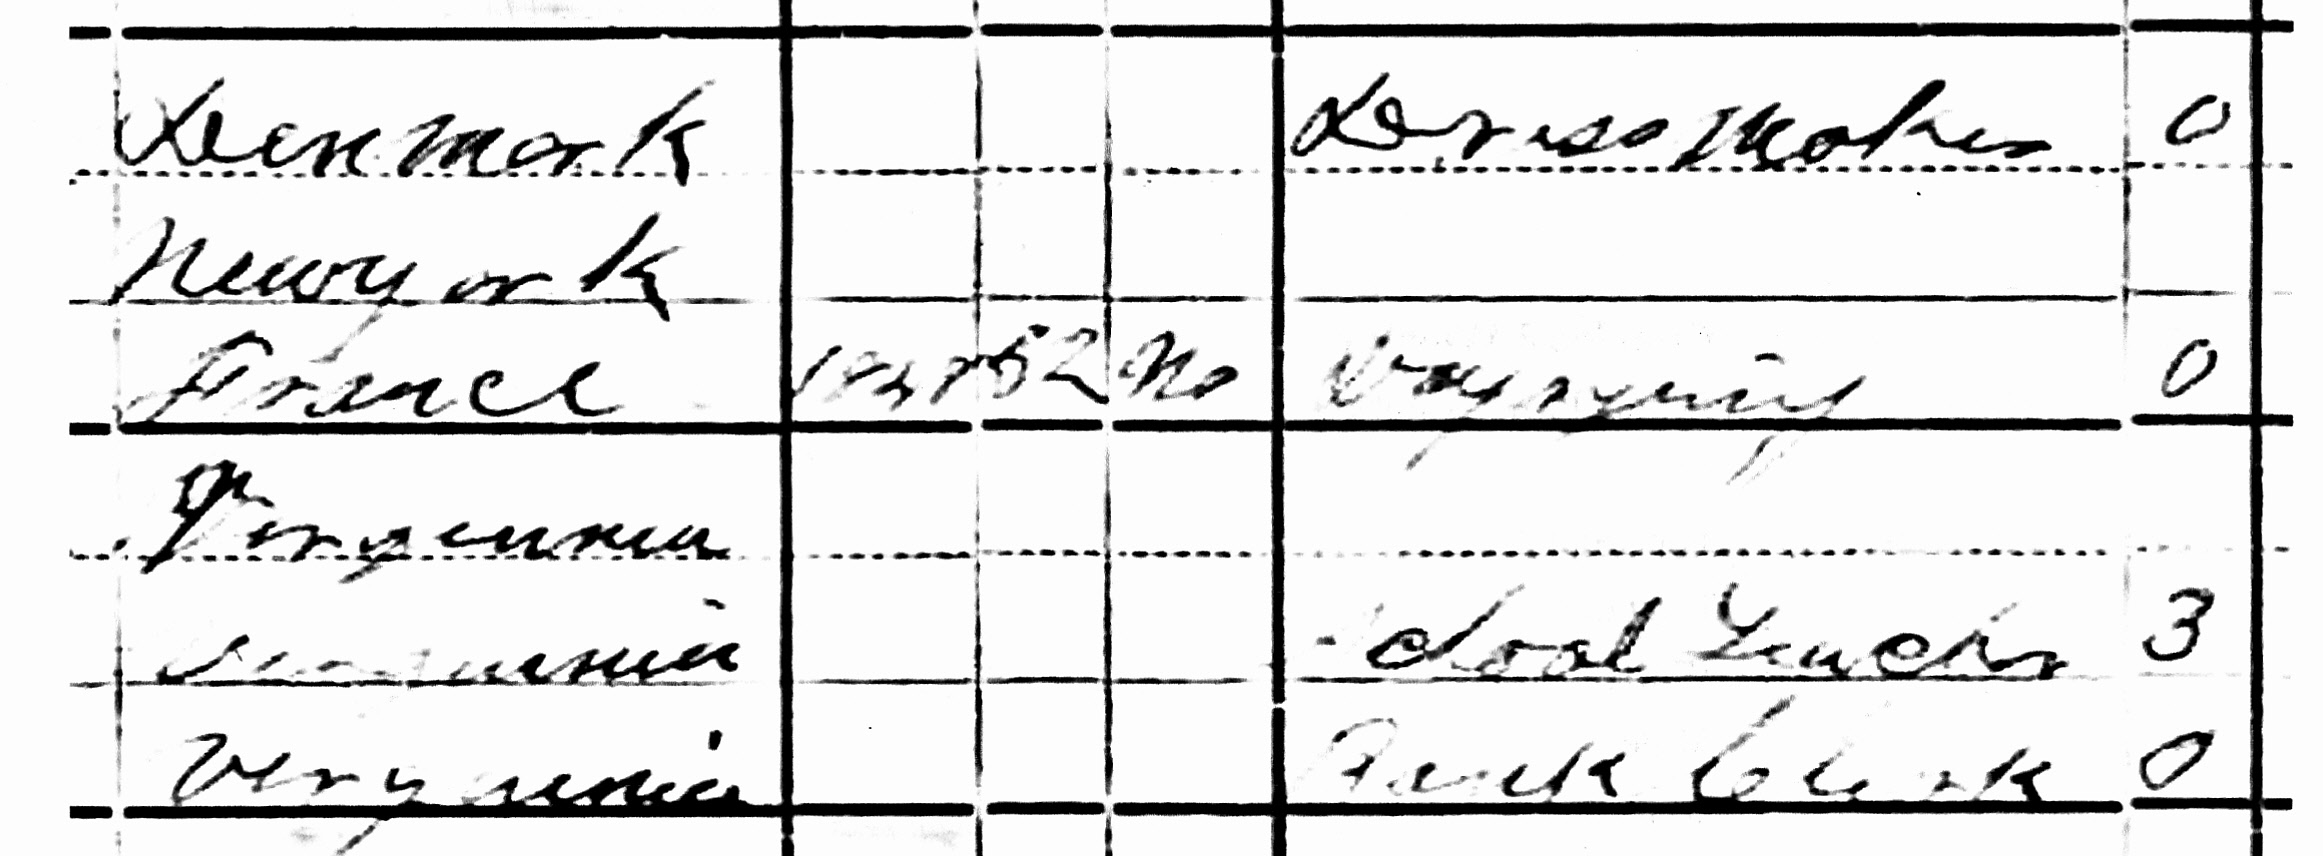 Denmark Dress Maker 0
Newyork
France 1848 52 No 0
Virginnia
Virginnia School Teacher 3
Virginnia Bank Clerk 0